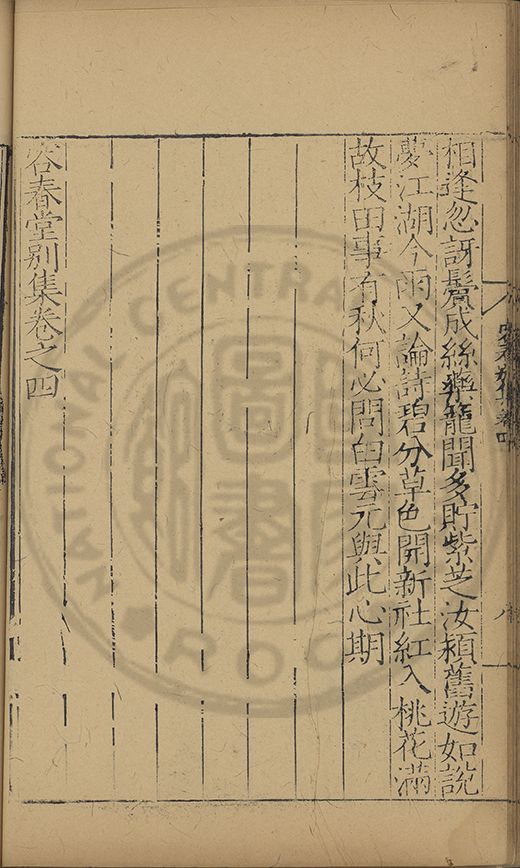 相逢忽訝鬢成絲藥籠聞多貯紫芝汝潁舊遊如說
夢江湖今雨又論詩碧分草色開新社紅入桃花滿
故枝田事有秋何必問白雲元與此心期
容春堂别集卷之四